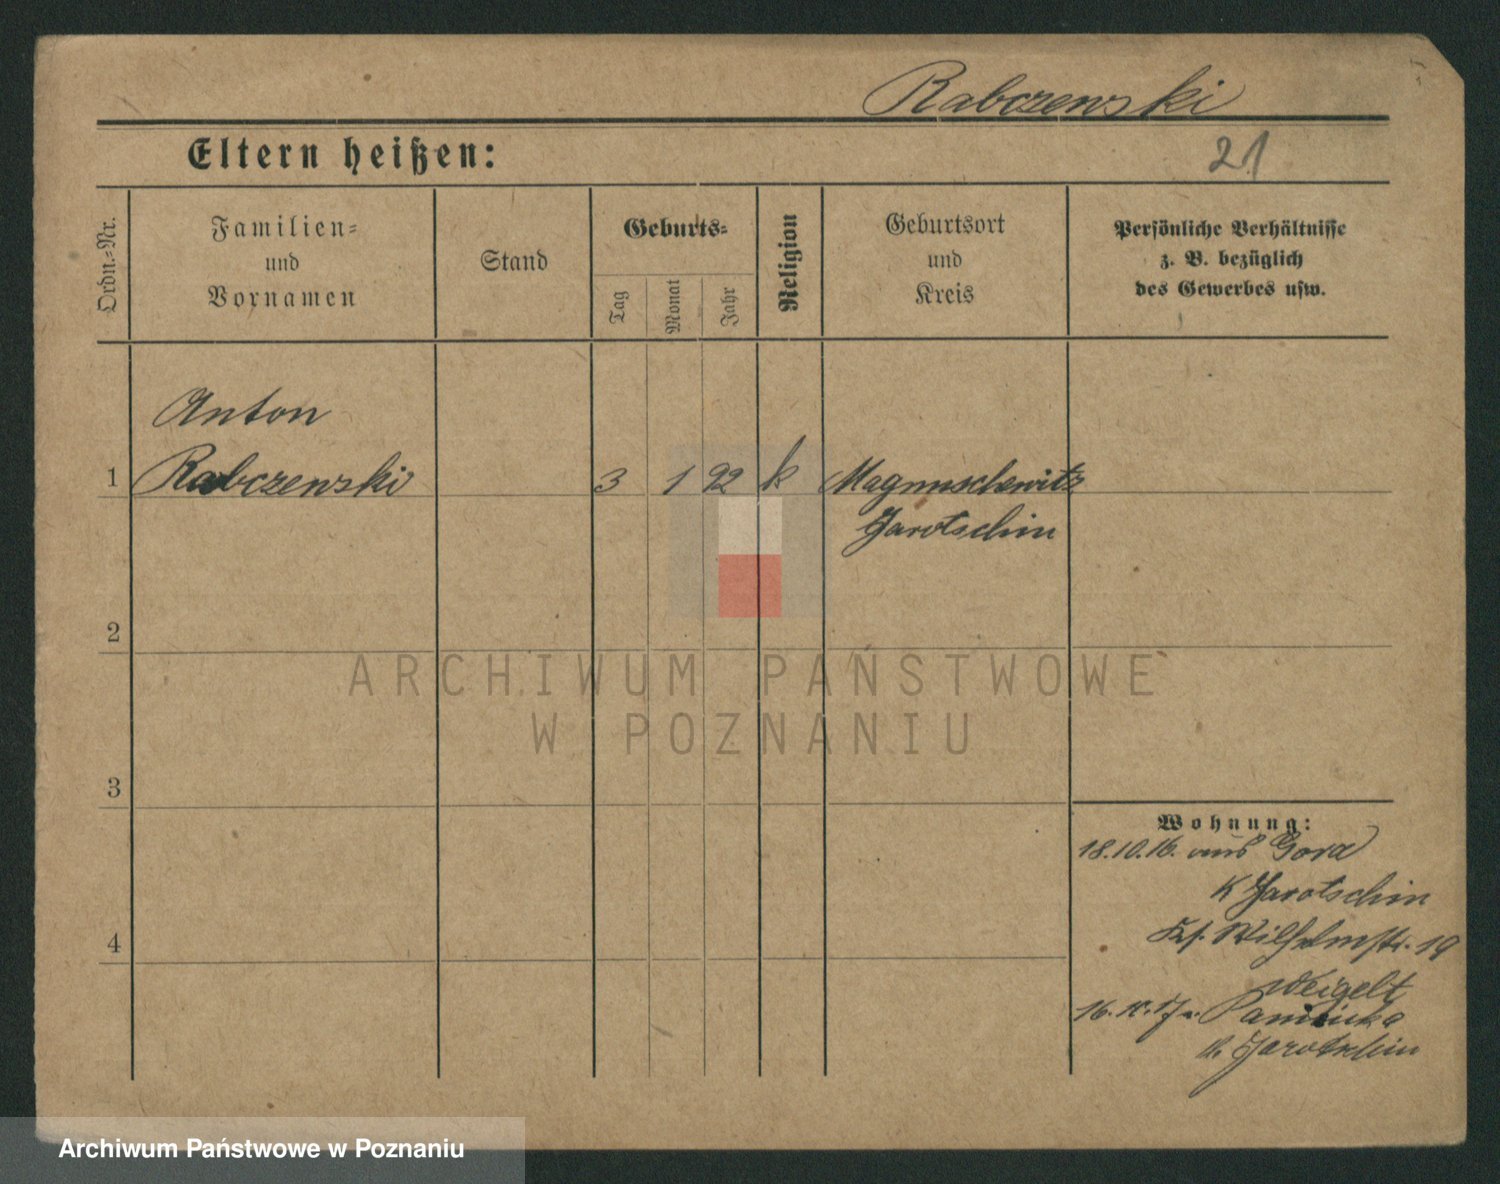 Rabczewski
Eltern heißen:
21
Ordn.-Nr.
Familien-
und
Vornamen
Stand
Geburts-
Tag
Monat
Jahr
Religion
Geburtsort
und
Kreis
Persönliche Verhältnisse
z. B. bezüglich
des Gewerbes usw.
Anton
1 Rabczewski 3 1 92 k Magnuschewitz
Jarotschin
2
ARCHIWUM PAŃSTWOWE
W POZNANIU
3
Wohnung:
18.10.16. aus Gora
K Jarotschin
Wilhelmstr. 19
4
Weigelt
16. 17
K. Jarotschin
Archiwum Państwowe w Poznaniu